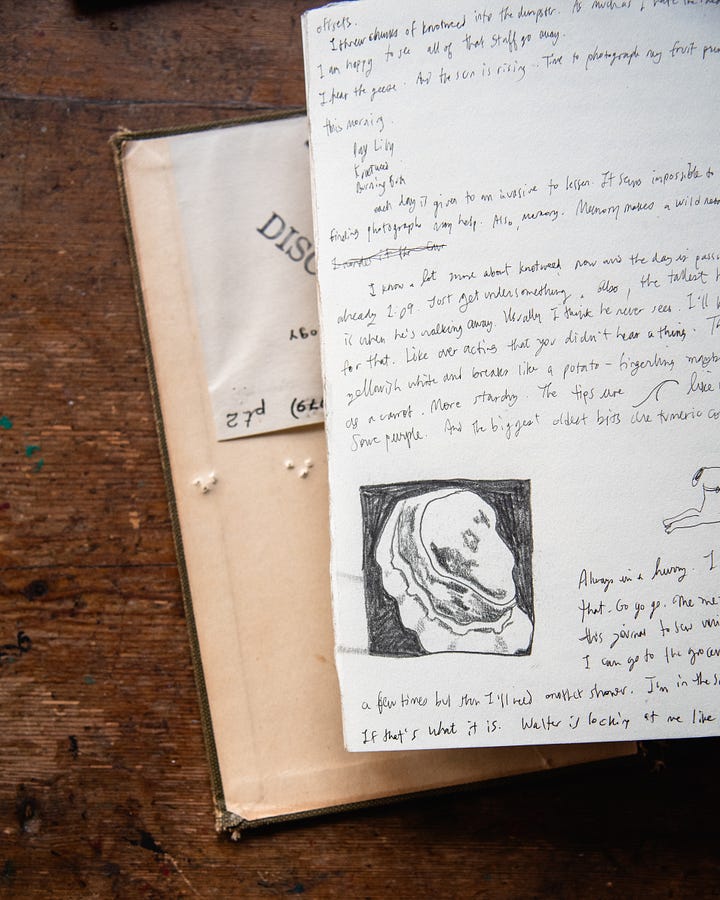 offsets.
I threw chunks of knotweed into the dumpster. As much as I hate the
I am happy to see all of that stuff go away.
I hear the geese. And the sun is rising. Time to photograph my fruit
this morning.
Day Lily
Knotweed
Burning Bush
each day is given to an invasive to lessen. It seems impossible to
finding photographs may help. Also, memory. Memory makes a wild
I
I know a lot more about knotweed now and the day is
already 1:09. Just get under something. Also, the tallest
is when he's walking away. Usually I think he never sees. I'll
for that. Like over acting that you didn't hear a thing.
yellowish white and breaks like a potato - fingerling maybe
as a carrot. More starchy. The tips are like
Some purple. And the biggest oldest bits are tumeric
Always in a hurry. I
that. Go go go. The
this journal to sew
I can go to the
a few times but then I'll need another shower. I'm in the
If that's what it is. Walter is looking at me like
DISC
ogy
79) pt 2